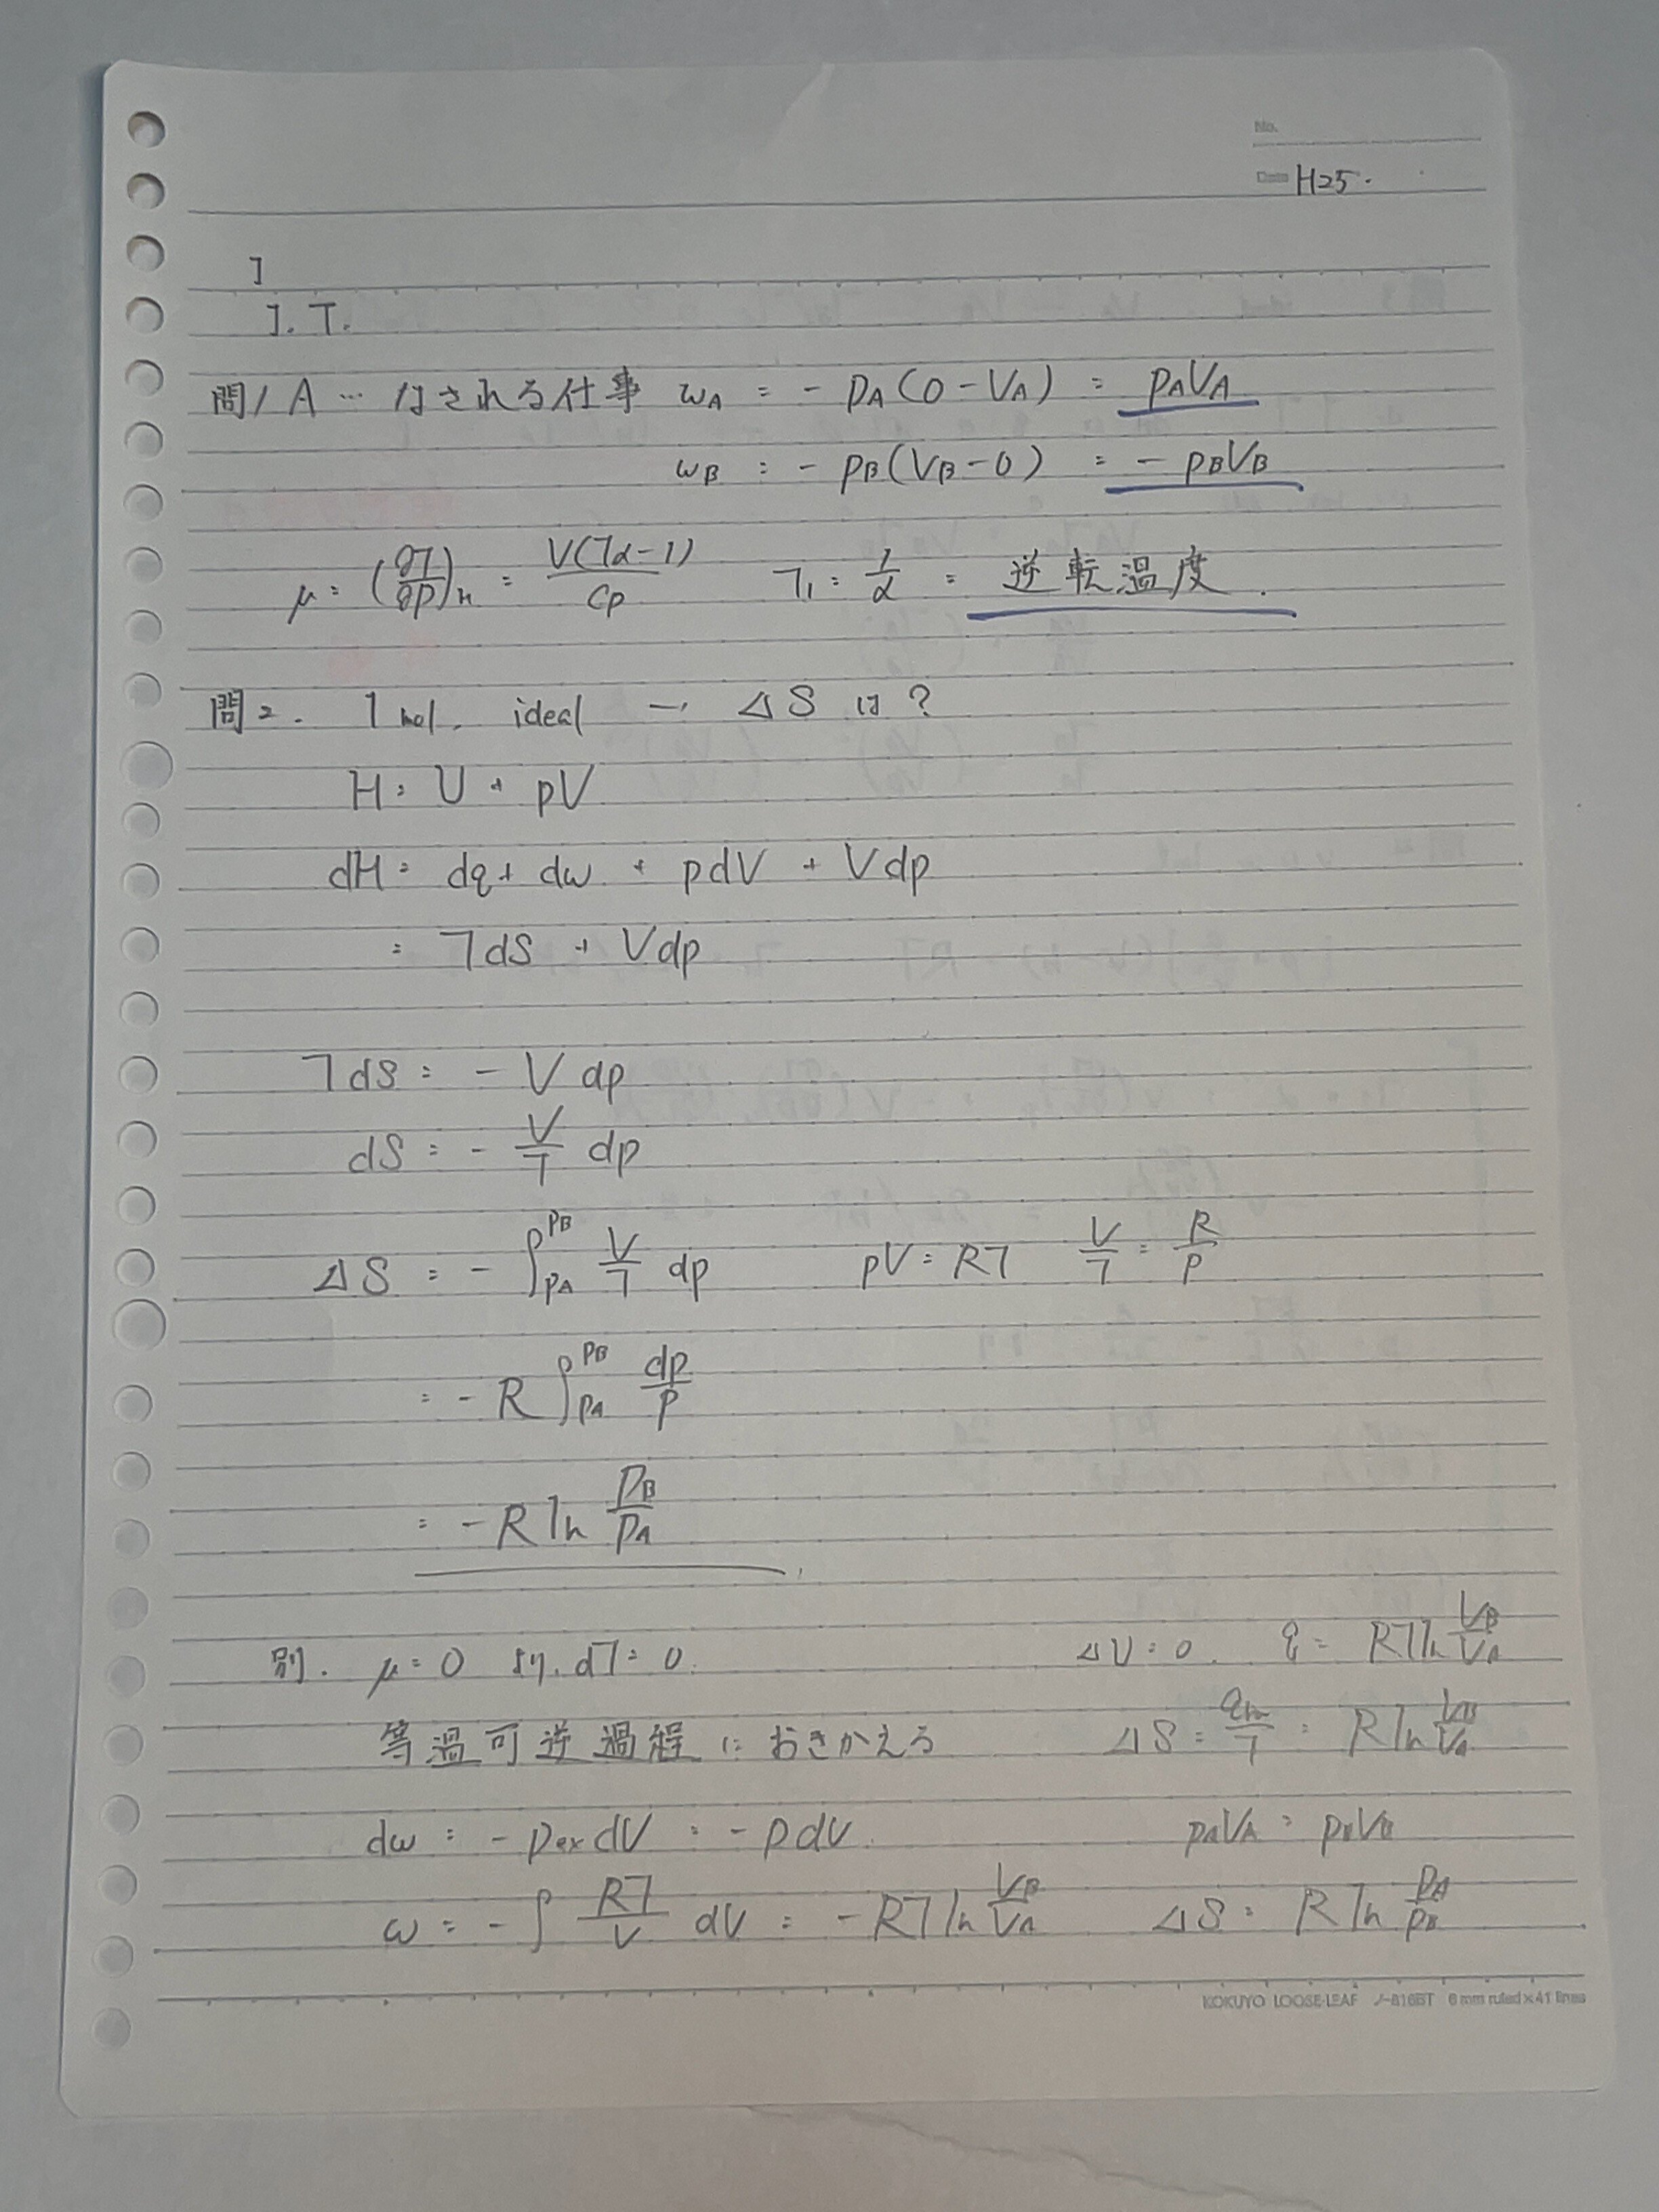 No.
Date H25.
I
J. T.
問1 A … なされる仕事 wA = - pA(0 - VA) = pAVA
wB = - pB(VB - 0) = - pBVB
μ = (∂T/∂p)H = V(Tα-1)/Cp T1 = 1/α = 逆転温度.
問2. 1 mol. ideal → ΔS は?
H = U + pV
dH = dq + dw + pdV + Vdp
= TdS + Vdp
TdS = - V dp
dS = - V/T dp
ΔS = - ∫pA^pB V/T dp pV = RT V/T = R/p
= - R ∫pA^pB dp/p
= - R ln pB/pA
別. μ = 0 より. dT = 0. ΔU = 0. q = RT ln VB/VA
等温可逆過程におきかえる ΔS = /T = R ln VB/VA
dw = - pex dV = - pdV. pAVA = pBVB
w = - ∫ RT/V dV = - RT ln VB/VA ΔS = R ln pA/pB
KOKUYO LOOSE-LEAF ノ-816BT 6 mm ruled×41 lines